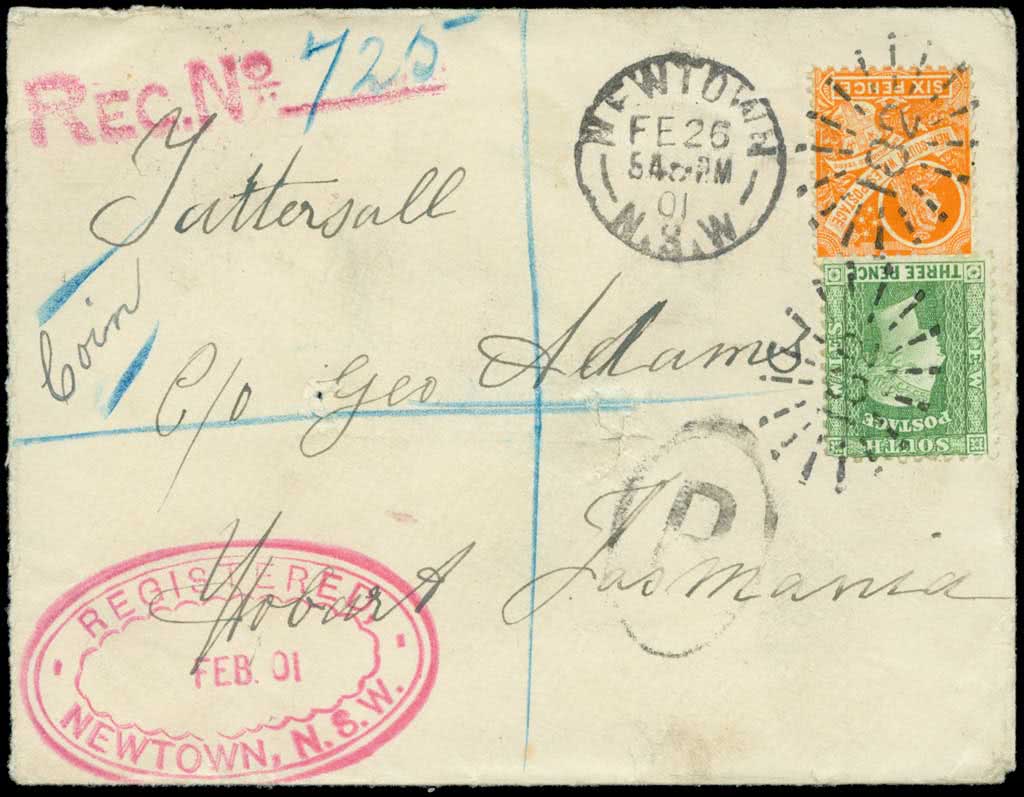 REC. No. 725
NEWTOWN
FE 26
5 45 PM
01
N.S.W
SIX PENCE
POSTAGE
THREE PENCE
NEW
SOUTH
WALES
POSTAGE
Tattersall
Coin
C/o Geo Adams
R
Hobart Tasmania
REGISTERED
FEB. 01
NEWTOWN, N.S.W.